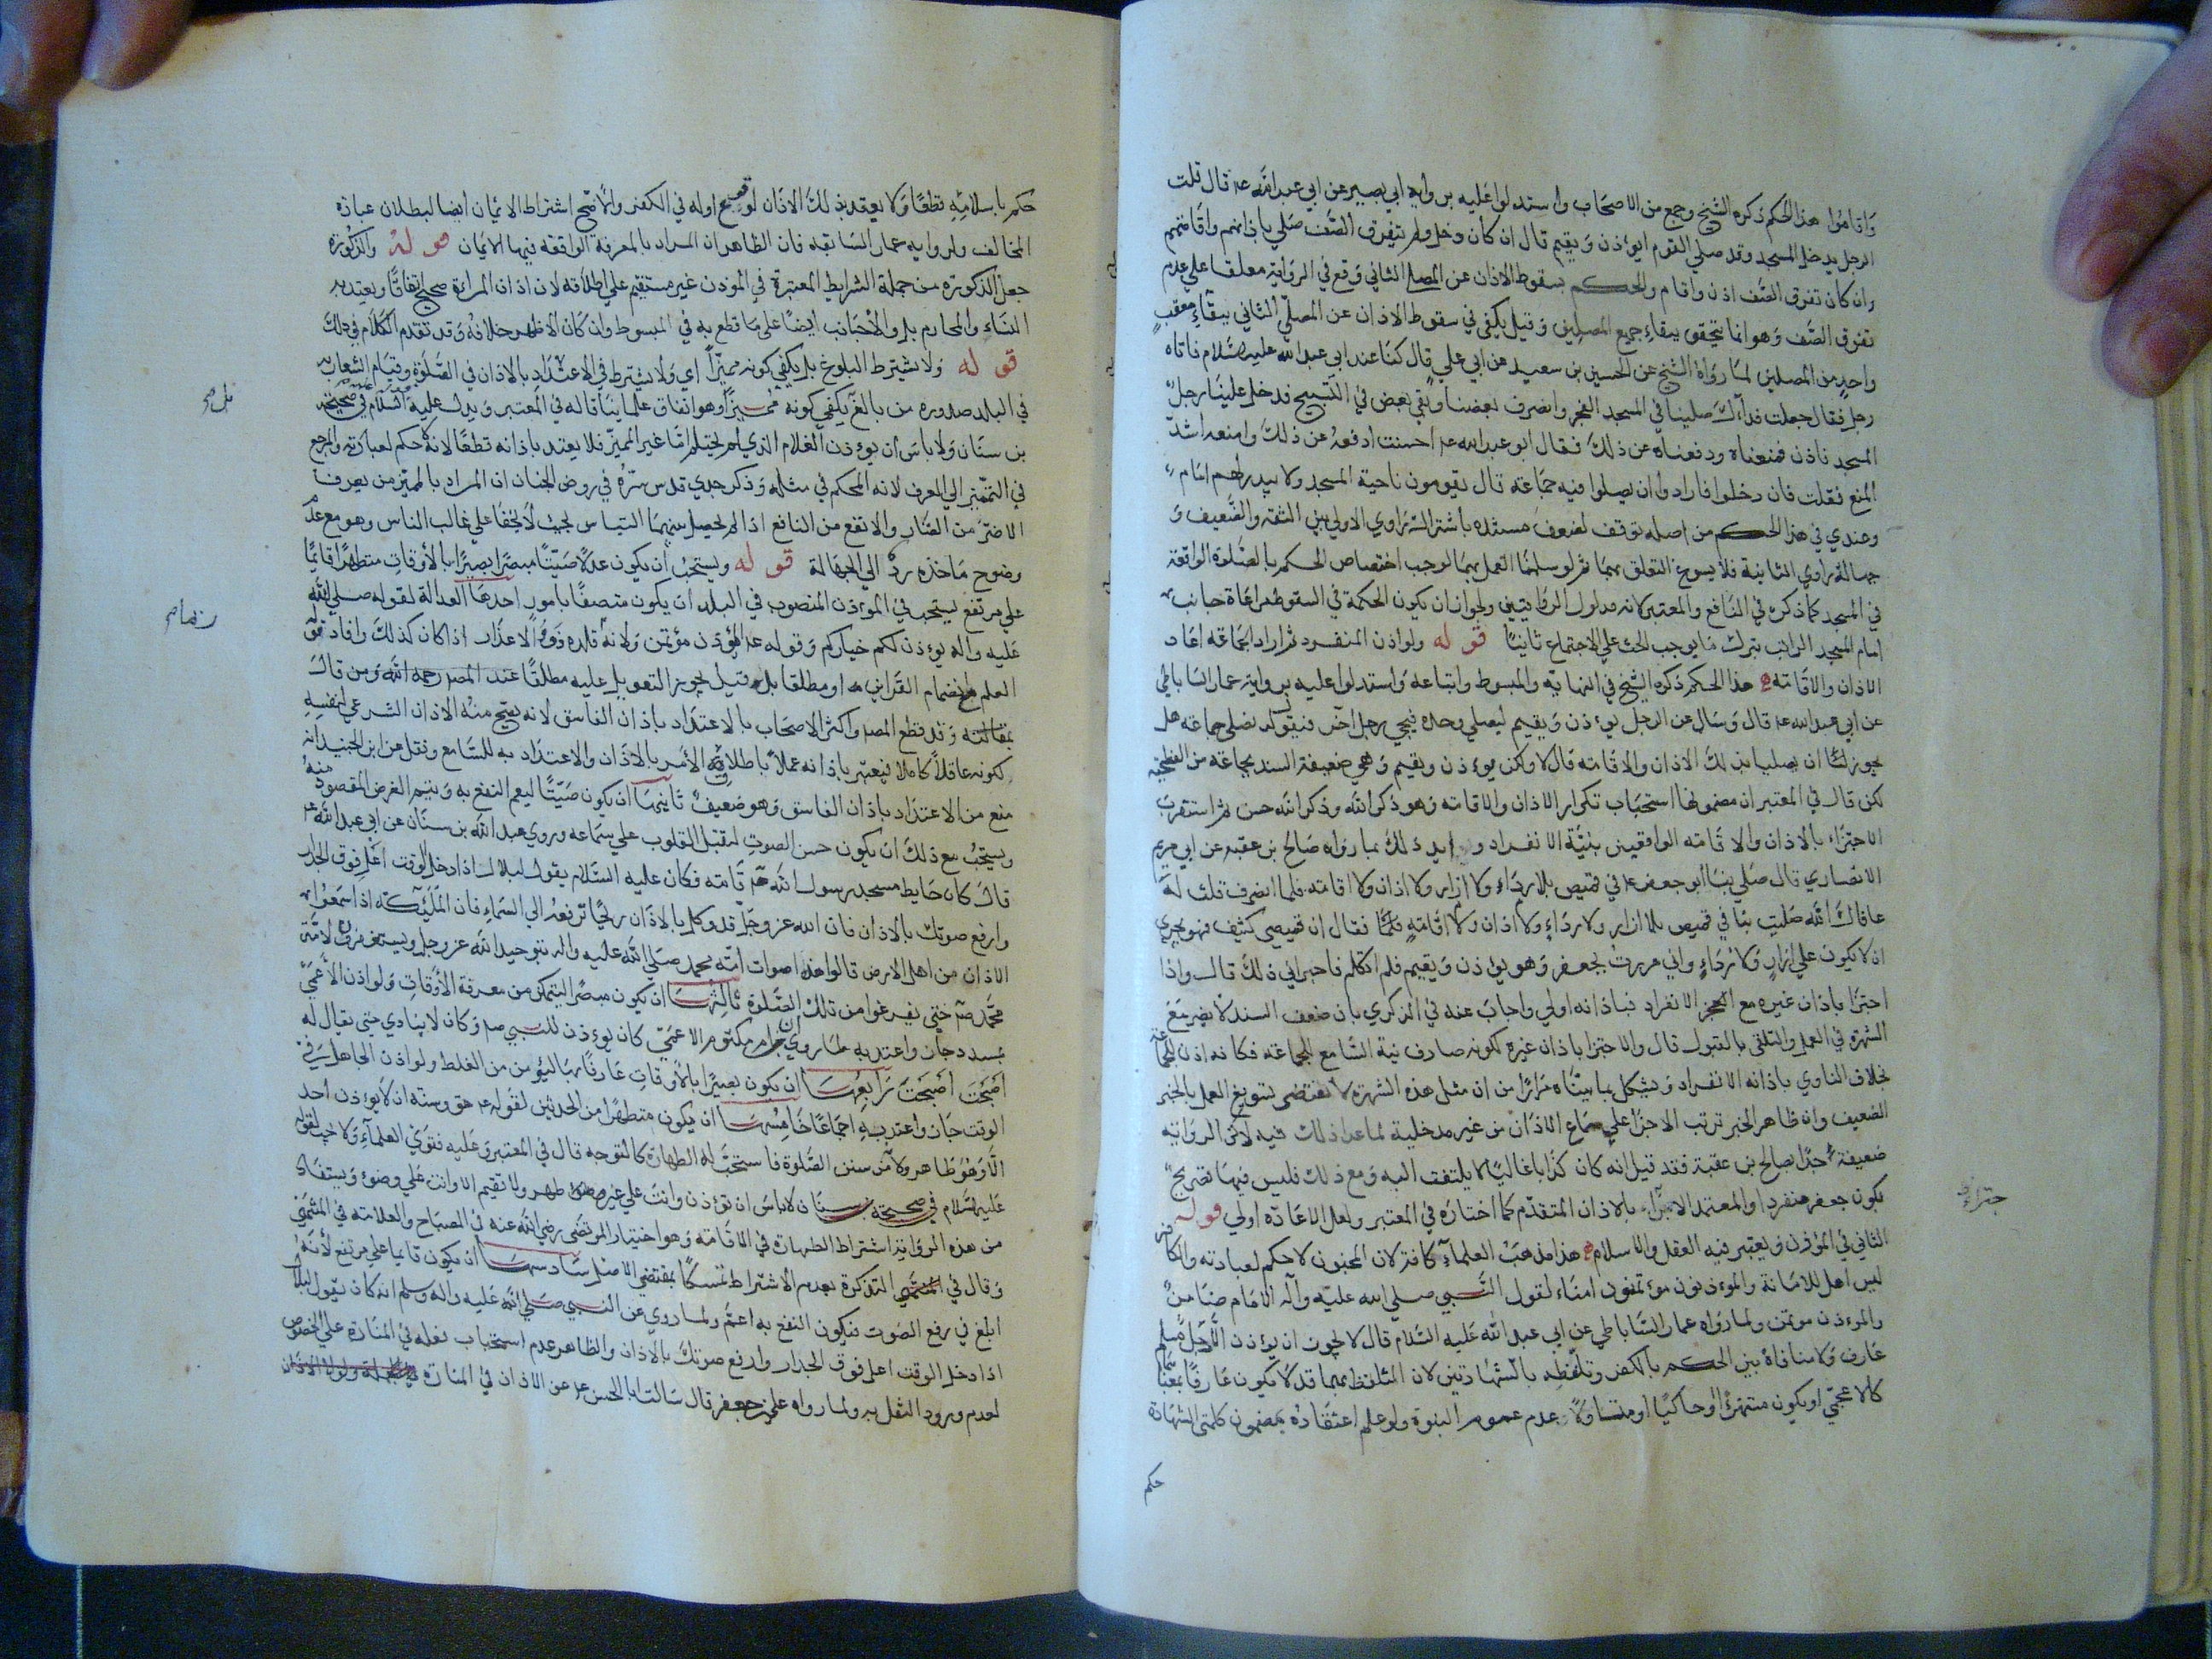 واقاموا هذا الحكم ذكره الشيخ وجمع من الاصحاب واستدلوا عليه برواية ابي بصير عن ابي عبد الله ع قال قلت
الرجل يدخل المسجد وقد صلي القوم ايوذن ويقيم قال ان كان دخل ولم يتفرق الصف صلي باذانهم واقامتهم
وان كان تفرق الصف اذن واقام والحكم بسقوط الاذان عن المصلي الثاني وقع في الرواية معلقا علي عدم
تفرق الصف وهو انما يتحقق ببقاء جميع المصلين وقيل يكفي في سقوط الاذان عن المصلي الثاني ببقاء معقب
واحد من المصلين لما رواه الشيخ عن الحسين بن سعيد عن ابي علي قال كنا عند ابي عبد الله عليه السلام فاتاه
رجل فقال جعلت فداك صلينا في المسجد الفجر وانصرف بعضنا وبقي بعض في التسبيح فدخل علينا رجل
المسجد فاذن فمنعناه ودفعناه عن ذلك فقال ابو عبد الله ع احسنت ادفعه عن ذلك وامنعه اشد
المنع فقلت فان دخلوا فارادوا ان يصلوا فيه جماعة قال يقومون ناحية المسجد ولا يبدر لهم امام
وعندي في هذا الحكم من اصله توقف لضعف مستنده باشتراك راوي الاولي بين الثقة والضعيف و
جهالة راوي الثانية فلا يسوغ التعلق بهما ثم لو سلمنا العمل بهما لوجب اختصاص الحكم بالصلوة الواقعة
في المسجد كما ذكره في النافع والمعتبر لانه مدلول الروايتين ولجواز ان يكون الحكمة في السقوط مراعاة جانب
امام المسجد الراتب بترك ما يوجب الحث علي الاجتماع ثانيا قوله ولو اذن المنفرد ثم اراد الجماعة اعاد
الاذان والاقامة هذا الحكم ذكره الشيخ في النهاية والمبسوط واتباعه واستدلوا عليه برواية عمار الساباطي
عن ابي عبد الله ع قال وسال عن الرجل يوذن ويقيم ليصلي وحده فيجي رجل آخر فيقول له نصلي جماعة هل
يجوز لنا ان يصليا بذلك الاذان والاقامة قال لا ولكن يوذن ويقيم وهي ضعيفة السند بجماعة من الفطحية
لكن قال في المعتبر ان مضمونها استحباب تكرار الاذان والاقامة وهو ذكر الله وذكر الله حسن ثم استقرب
الاجتزاء بالاذان والاقامة الواقعين بنية الانفراد وايد ذلك بما رواه صالح بن عقبة عن ابي مريم
الانصاري قال صلي بنا ابو جعفر ع في قميص بلا رداء ولا ازار ولا اذان ولا اقامة فلما انصرف قلت له
عافاك الله صليت بنا في قميص بلا ازار ولا رداء ولا اذان ولا اقامة فقال ان قميصي كثيف فهو يجزي
ان لا يكون علي ازار ولا رداء واني مررت بجعفر وهو يوذن ويقيم فلم اتكلم فاجزاني ذلك قال واذا
اجتزا باذان غيره مع الانفراد فباذانه اولي واجاب عنه في الذكري بان ضعف السند لا يضر مع
الشهرة في العمل والتلقي بالقبول قال والاجتزا باذان غيره لكونه صادف نية السامع للجماعة فكانه اذن للجماعة
بخلاف الناوي باذانه الانفراد ويشكل بما بيناه مرارا من ان مثل هذه الشهرة لا تقتضي تسويغ العمل بالخبر
الضعيف وان ظاهر الخبر ترتب الاجزا علي سماع الاذان من غير مدخلية لما عدا ذلك فيه لكن الرواية
ضعيفة جدا بصالح بن عقبة فقد قيل انه كان كذابا غاليا لا يلتفت اليه ومع ذلك فليس فيها تصريح
بكون جعفر منفردا والمعتمد الاجتزاء بالاذان المتقدم كما اختاره في المعتبر ولعل الاعادة اولي قوله
الثاني في الموذن ويعتبر فيه العقل والاسلام هذا مذهب العلماء كافة لان المجنون لا حكم لعبادته والكافر
ليس اهل للامانة والموذنون موتمنون امناء لقول النبي صلي الله عليه وآله الامام ضامن
والموذن موتمن ولما رواه عمار الساباطي عن ابي عبد الله عليه السلام قال لا يجوز ان يوذن الا رجل مسلم
عارف ولا منافاة بين الحكم بالكفر وتلفظه بالشهادتين لان المتلفظ بهما قد لا يكون عارفا بمعناهما
كالاعجمي او يكون مستهزئا او حاكيا او متاولا عدم عموم النبوة ولو علم اعتقاده بمضمون كلمتي الشهادة
حكم
حكم باسلامه قطعا ولا يعتد بذلك الاذان لوقوع اوله في الكفر والاصح اشتراط الايمان ايضا لبطلان عبادة
المخالف ولرواية عمار السابقة فان الظاهر ان المراد بالمعرفة الواقعة فيها الايمان قوله والذكورة
جعل الذكورة من جملة الشرايط المعتبرة في الموذن غير مستقيم علي اطلاقه لان اذان المراة صحيح اتفاقا ويعتد به
النساء والمحارم بل والاجانب ايضا علي ما قطع به في المبسوط وان كان الاظهر خلافه وقد تقدم الكلام في ذلك
قوله ولا يشترط البلوغ بل يكفي كونه مميزا اي ولا يشترط في الاعتداد بالاذان في الصلوة وقيام الشعار به
في البلد صدوره من بالغ يكفي كونه مميزا وهو اتفاق علمائنا قاله في المعتبر ويدل عليه قوله عليه السلام في صحيحة
بن سنان ولا باس ان يوذن الغلام الذي لم يحتلم اما غير المميز فلا يعتد باذانه قطعا لانه لا حكم لعبادته والمرجع
في التمييز الي العرف لانه المحكم في مثله وذكر جدي قدس سره في روض الجنان ان المراد بالمميز من يعرف
الاضر من الضار والانفع من النافع اذا لم يحصل بينهما التباس بحيث لا يخفا علي غالب الناس وهو مع عدم
وضوح ماخذه رد الي الجهالة قوله ويستحب ان يكون عدلا صيتا مبصرا بصيرا بالاوقات متطهرا قائما
علي مرتفع يستحب في الموذن المنصوب في البلد ان يكون متصفا بامور احدها العدالة لقوله صلي الله
عليه وآله يوذن لكم خياركم وقوله ع المؤذن مؤتمن ولانه قلده ذوو الاعذار اذا كان كذلك وافاد قوله
العلم مع انضمام القراين او مطلقا بل قيل بجواز التعويل عليه مطلقا عند المصر رحمه الله ومن قال
بمقالته وقد قطع المصر واكثر الاصحاب بالاعتداد باذان الفاسق لانه يصح منه الاذان الشرعي لنفسه
لكونه عاقلا كاملا فيعتبر باذانه عملا باطلاق الامر بالاذان والاعتداد به للسامع ونقل عن ابن الجنيد انه
منع من الاعتداد باذان الفاسق وهو ضعيف ثانيها ان يكون صيتا ليعم النفع به ويتم الغرض المقصود منه
ويستحب مع ذلك ان يكون حسن الصوت لتقبل القلوب علي سماعه وروي عبد الله بن سنان عن ابي عبد الله ع
قال كان حايط مسجد رسول الله ص قامة فكان عليه السلام يقول لبلال اذا دخل الوقت اعل فوق الجدار
وارفع صوتك بالاذان فان الله عز وجل قد وكل بالاذان ريحا ترفعه الي السماء فان الملئكة اذا سمعوا
الاذان من اهل الارض قالوا هذه اصوات امة محمد صلي الله عليه وآله بتوحيد الله عز وجل ويستغفرون لامة
محمد ص حتي يفرغوا من تلك الصلوة ثالثها ان يكون مبصرا ليتمكن من معرفة الاوقات ولو اذن الاعمي
بمسدد جاز واعتد به لما روي ان ابن ام مكتوم الاعمي كان يوذن للنبي ص وكان لا ينادي حتي يقال له
اصبحت اصبحت رابعها ان يكون بصيرا بالاوقات عارفا بها ليؤمن من الغلط ولو اذن الجاهل في
الوقت جاز واعتد به اجماعا خامسها ان يكون متطهرا من الحدثين لقوله ع حق وسنة ان لا يوذن احد
الا وهو طاهر ولانه من سنن الصلوة فاستحب له الطهارة كالتوجه قال في المعتبر وعليه فتوي العلماء ولا يجب لقوله
عليه السلام في صحيحة بن سنان لا باس ان توذن وانت علي غير طهور ولا تقيم الا وانت علي وضوء ويستفاد
من هذه الرواية اشتراط الطهارة في الاقامة وهو اختيار المرتضي رضي الله عنه في المصباح والعلامة في المنتهي
وقال في التذكرة بعدم الاشتراط تمسكا بمقتضي الاصل سادسها ان يكون قائما علي مرتفع لانه
ابلغ في رفع الصوت فيكون النفع به اعم ولما روي عن النبي صلي الله عليه وآله وسلم انه كان يقول لبلال
اذا دخل الوقت اعل فوق الجدار وارفع صوتك بالاذان والظاهر عدم استحباب فعله في المنارة علي الخصوص
لعدم ورود النقل به ولما رواه علي بن جعفر قال سالت ابا الحسن ع عن الاذان في المنارة